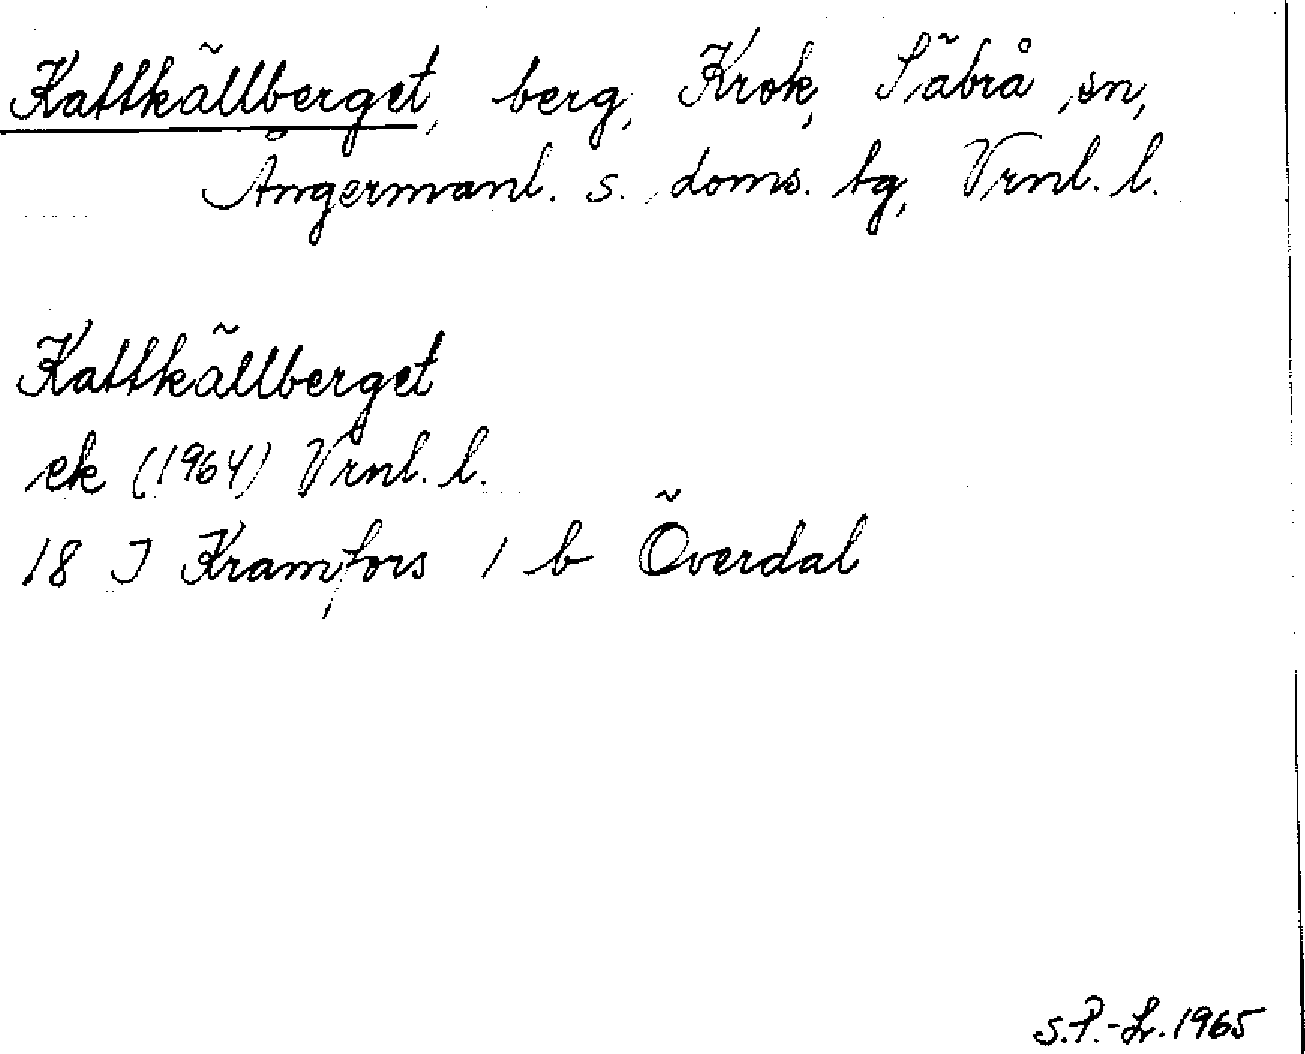 Kattkällberget, berg, Krok, Säbrå sn,
Ångermanl. s. doms. bg, Vrnl. l.
Kattkällberget
ek (1964) Vrnl. l.
18 I Kramfors 1 b Överdal
S.P.-Lr. 1965